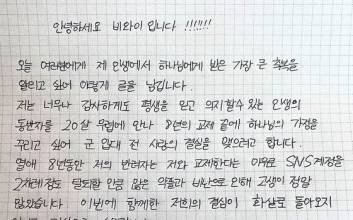 안녕하세요 비와이 입니다 !!!!!!!
오늘 여러분에게 제 인생에서 하나님에게 받은 가장 큰 축복을
알리고 싶어 이렇게 글을 남깁니다.
저는 너무나 감사하게도 평생을 믿고 의지할수 있는 인생의
동반자를 20살 무렵에 만나 8년의 교제 끝에 하나님의 가정을
꾸리고 싶어 군 입대 전 사랑의 결실을 맺으려고 합니다.
연애 8년동안 저의 반려자는 저와 교제한다는 이유로 SNS계정을
2차례정도 탈퇴할 만큼 많은 악플과 비난으로 인해 고생이 정말
많았습니다. 이번에 함께한 저희의 결실이 화살로 돌아오지